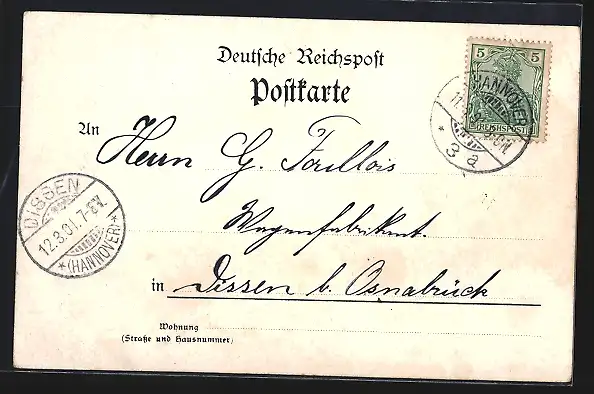 Deutsche Reichspost
Postkarte
5 5
REICHSPOST
HANNOVER
3 a
An Herrn G.
Wagenfabrikant.
in Dissen b. Osnabrück
DISSEN
12.3.01.7-8V.
*(HANNOVER)*
Wohnung
(Straße und Hausnummer)